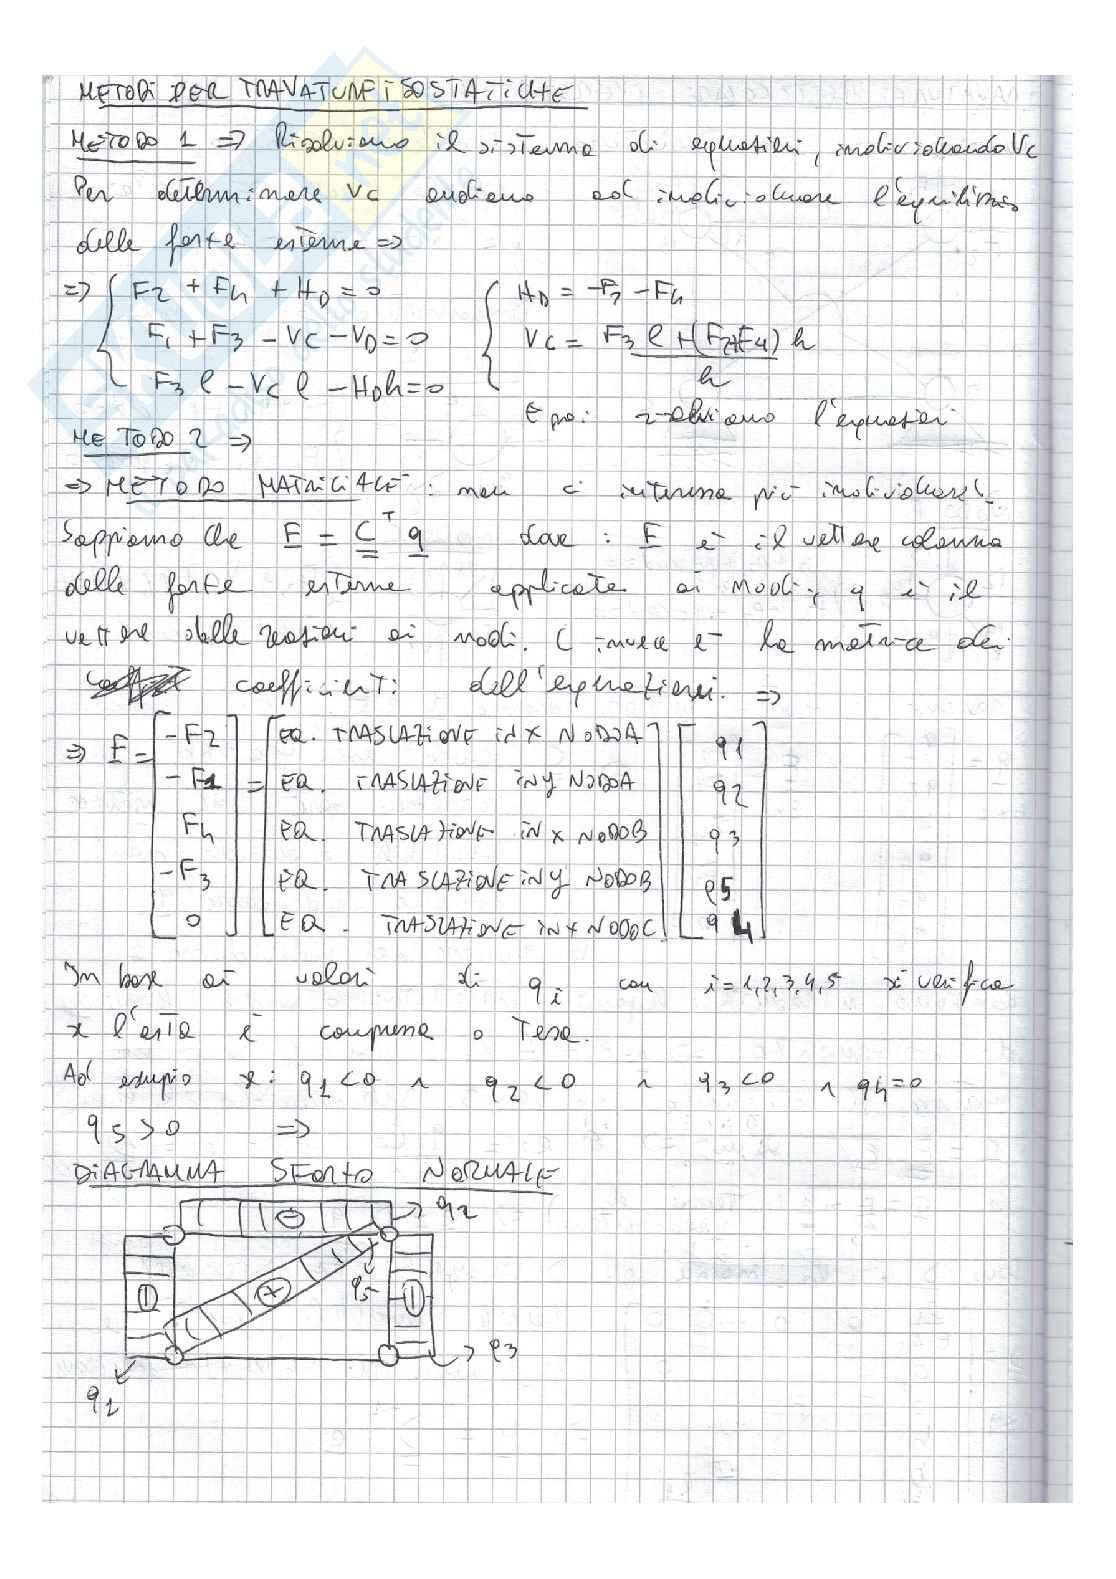 METODI PER TRAVATURE ISOSTATICHE
METODO 1 => Risolviamo il sistema di equazioni, individuando Vc
Per determinare Vc andiamo ad individuare l'equilibrio
delle forze esterne =>
=> { F2 + F4 + HD = 0
F1 + F3 - VC - VD = 0
F3 l - VC l - HD h = 0
{ HD = -F2 - F4
VC = F3 l + (F2+F4) h / h
E poi risolviamo l'equazioni
METODO 2 =>
=> METODO MATRICIALE : non ci interessa più individuare
Sappiamo che F = C^T q dove : F è il vettore colonna
delle forze esterne applicate ai nodi; q è il
vettore delle reazioni ai nodi. C invece è la matrice dei
coefficienti dell'equazioni. =>
=> F = [ -F2 ] = [ EQ. TRASLAZIONE IN X NODO A ] [ q1 ]
-F1 EQ. TRASLAZIONE IN Y NODO A q2
F4 EQ. TRASLAZIONE IN X NODO B q3
-F3 EQ. TRASLAZIONE IN Y NODO B q5
0 EQ. TRASLAZIONE IN X NODO C q4
In base ai valori di qi con i=1,2,3,4,5 si verifica
se l'asta è compressa o tesa.
Ad esempio se: q1<0 ∧ q2<0 ∧ q3<0 ∧ q4=0
q5>0 =>
DIAGRAMMA SFORZO NORMALE
q2
q5
q3
q1